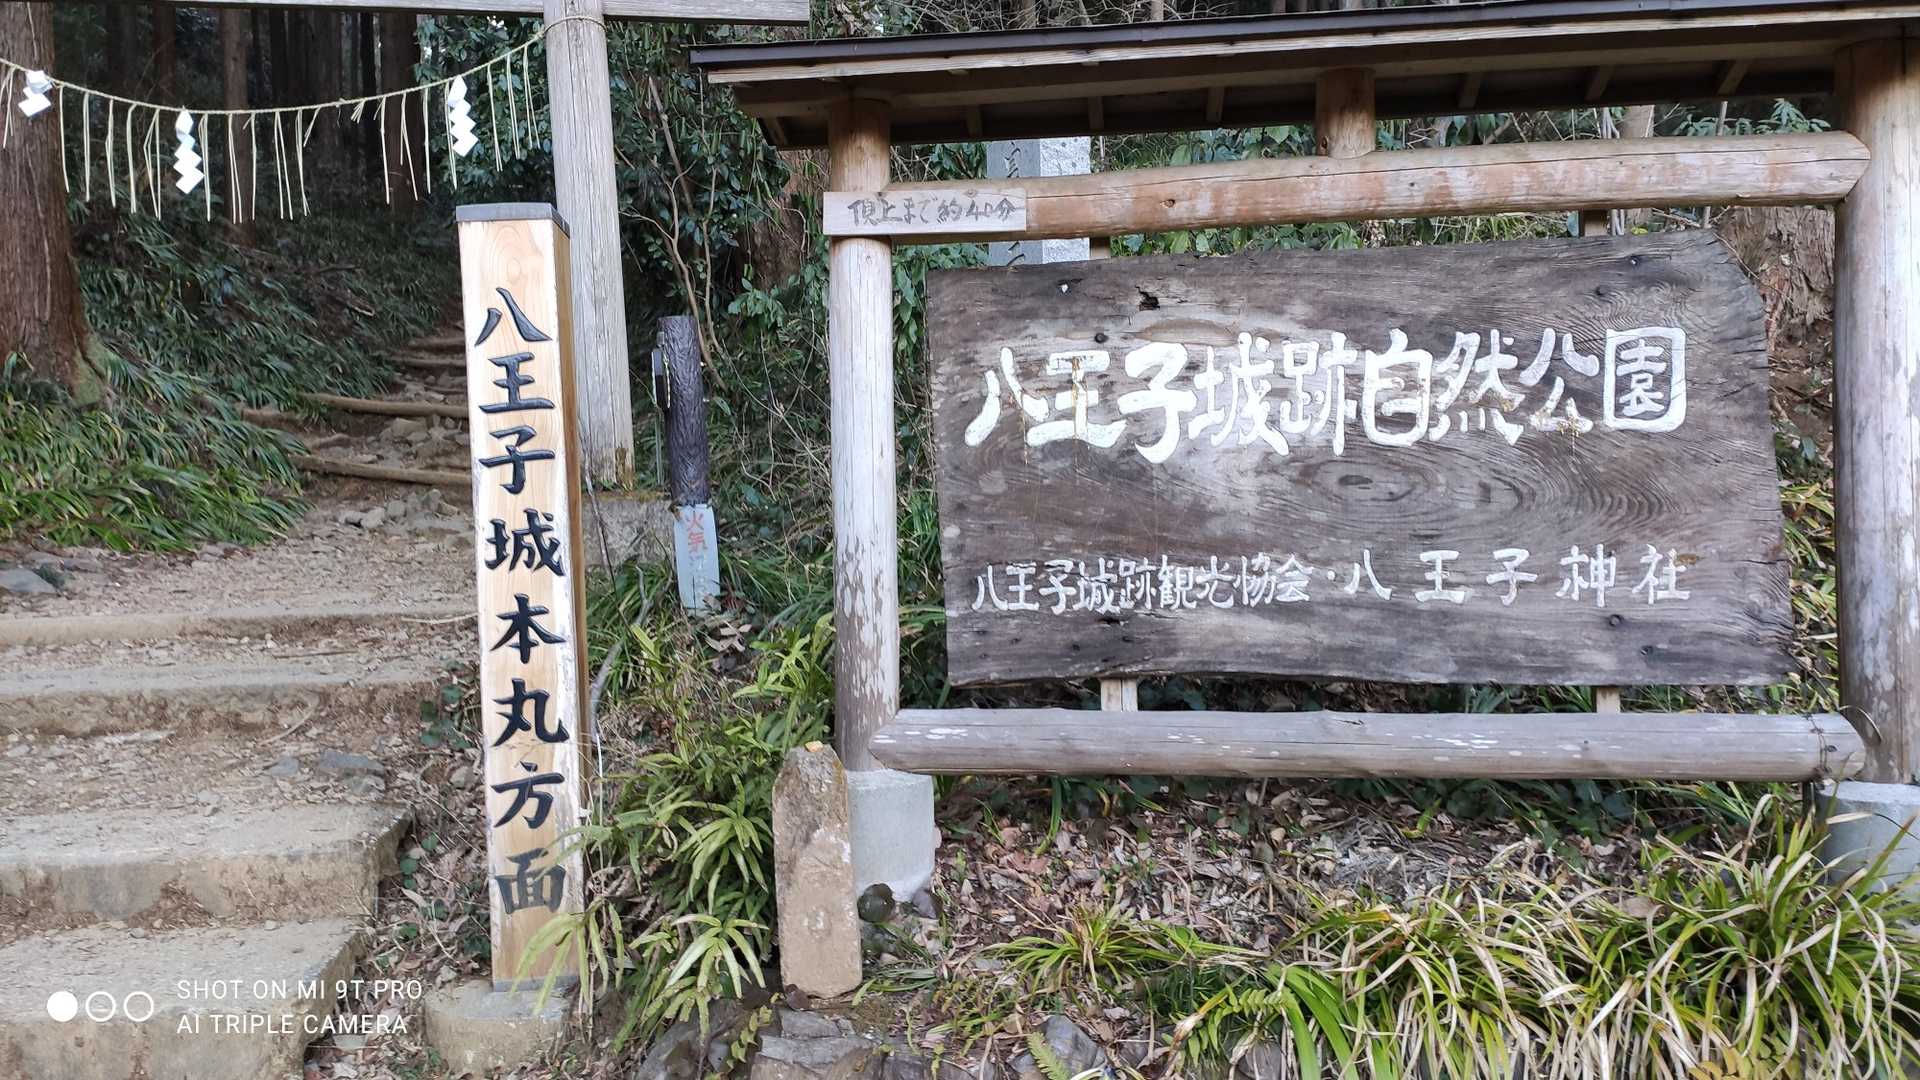 八王子城本丸方面
頂上まで約40分
八王子城跡自然公園
八王子城跡観光協会・八王子神社
火気
SHOT ON MI 9T PRO
AI TRIPLE CAMERA